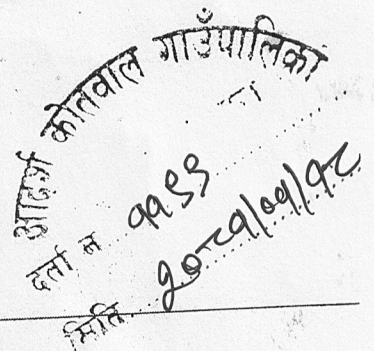 आदर्श कोतवाल गाउँपालिका
दर्ता नं ११९९
मिति. २०८१/०१/१८